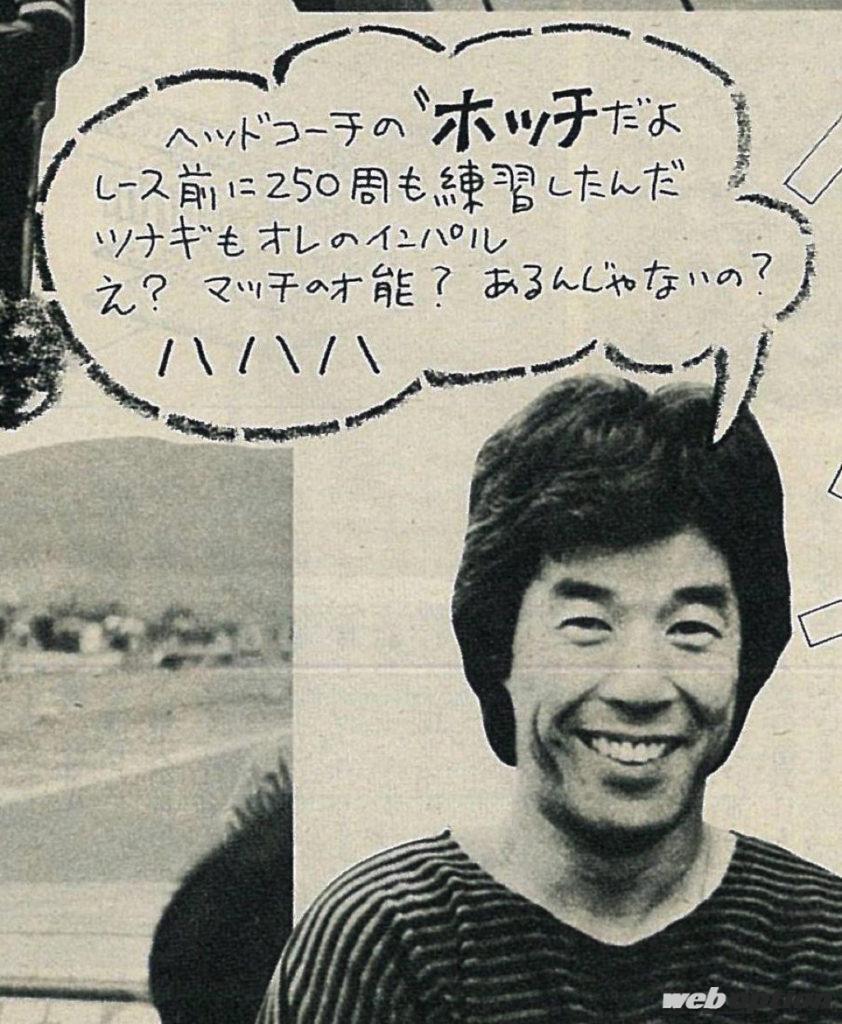 ヘッドコーチの〝ホッチだよ
レース前に250周も練習したんだ
ツナギもオレのインパル
え？ マッチの才能？ あるんじゃないの？
ハハハ
web option